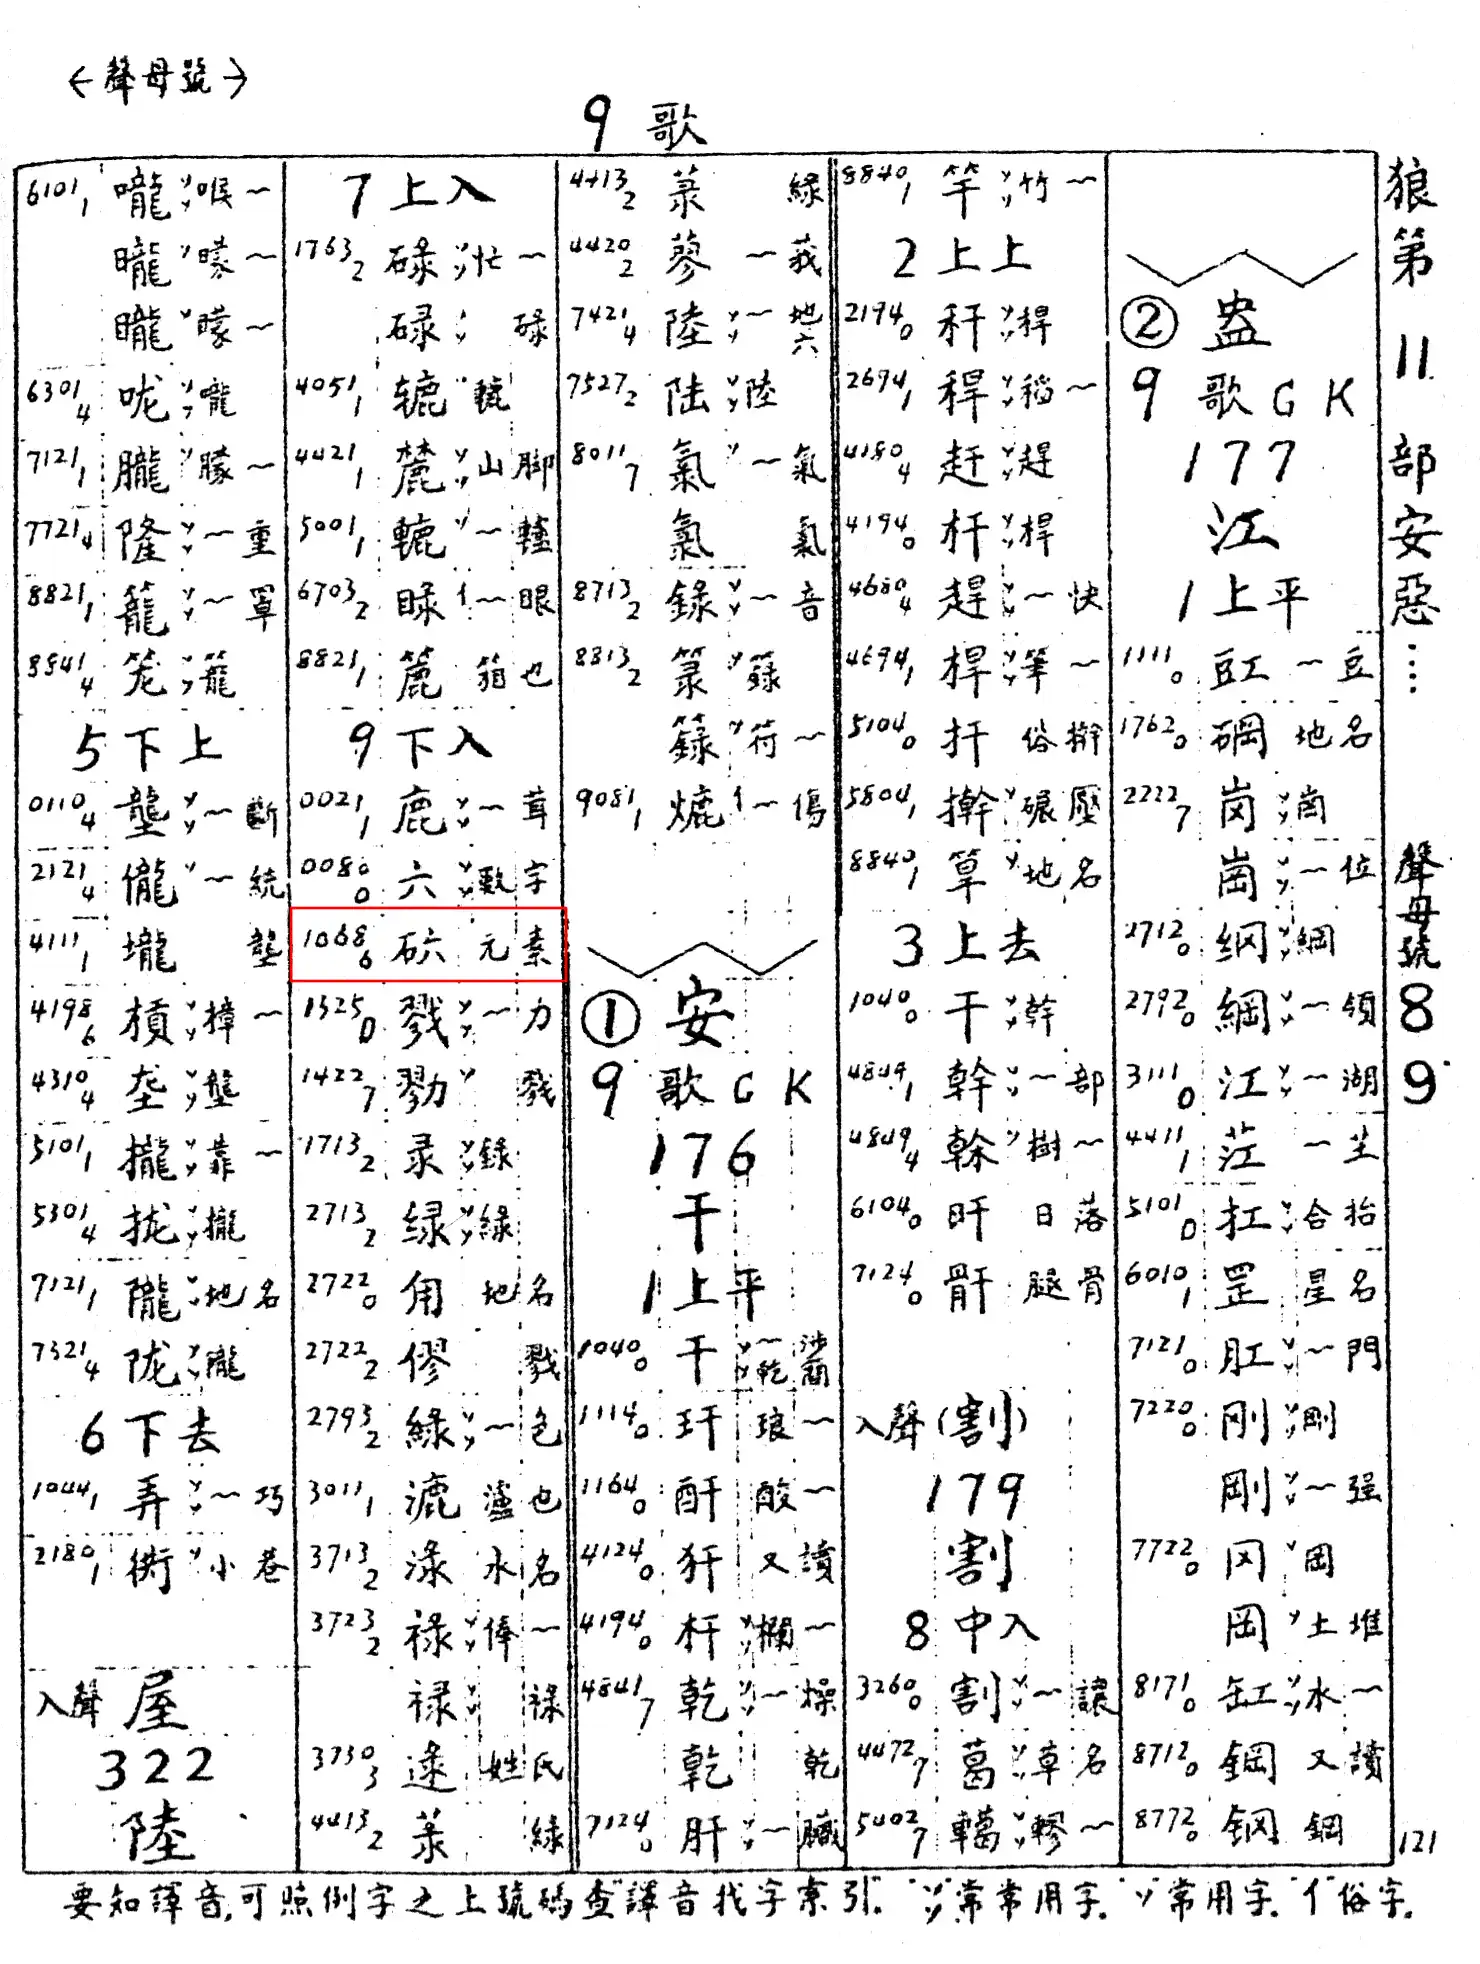 <聲母號>
9 歌
6101₁ 嚨 YY 喉~
曨 Y 曚~
矓 Y 矇~
6301₄ 咙 YY 嚨
7121₁ 朧 Y 朦~
7721₄ 隆 YY ~重
8821₁ 籠 YY ~罩
8841₄ 笼 YY 籠
5下上
0110₄ 壟 YY ~斷
2121₄ 儱 Y ~統
4111₁ 壠 壟
4198₆ 槓 YY 撞~
4310₄ 垄 YY 壟
5101₁ 攏 YY 靠~
5301₄ 拢 YY 攏
7121₁ 隴 YY 地名
7321₄ 陇 YY 隴
6下去
1044₁ 弄 YY ~巧
2180₁ 衖 Y 小巷
入聲 屋
322
陸
7上入
1763₂ 碌 YY 忙~
碌 碌
4051₁ 辘 Y 轆
4421₁ 麓 YY 山脚
5001₁ 轆 Y ~轤
6703₂ 睩 亻 ~眼
8821₁ 簏 箱也
9下入
0021₁ 鹿 YY ~茸
0080₀ 六 YY 數字
1068₆ 𥐻 元素
1325₀ 戮 YY ~力
1422₇ 勠 Y 戮
1713₂ 录 YY 錄
2713₂ 绿 YY 綠
2722₀ 甪 地名
2722₂ 僇 戮
2793₂ 綠 YY ~色
3011₁ 漉 瀘也
3713₂ 淥 水名
3723₂ 禄 YY 俸~
祿 YY 祿
3730₃ 逯 姓氏
4413₂ 菉 綠
4413₂ 菉 綠
4420₂ 蓼 ~莪
7421₄ 陸 YY ~地六
7527₂ 陆 YY 陸
8011₇ 氯 Y ~氣
氯 氯
8713₂ 錄 YY ~音
8813₂ 箓 Y 籙
籙 Y 符~
9081₁ 熝 亻 ~傷
①安
9 歌 G K
176
干
1上平
1040₀ 干 YY ~沙 乾爾
1114₀ 玕 琅~
1164₀ 酐 酸~
4124₀ 犴 又讀
4194₀ 杆 YY 欄~
4841₇ 乾 YY ~燥
乾 乾
7124₀ 肝 YY ~臟
8840₁ 竿 YY 竹~
2上上
2194₀ 秆 YY 稈
2694₁ 稈 YY 稻~
4180₄ 赶 YY 趕
4194₀ 杆 YY 桿
4680₄ 趕 YY ~快
4694₁ 桿 YY 筆~
5104₀ 扞 俗擀
5804₁ 擀 Y 碾壓
8840₁ 筸 Y 地名
3上去
1040₀ 干 YY 幹
4849₁ 幹 YY ~部
4849₄ 榦 Y 樹~
6104₀ 旰 日落
7124₀ 骭 腿骨
入聲(割)
179
割
8中入
3260₀ 割 YY ~讓
4472₇ 葛 YY 草名
5402₇ 轕 YY 轇~
②盎
9 歌 G K
177
江
1上平
1111₀ 豇 ~豆
1762₀ 碙 地名
2222₇ 岗 YY 崗
崗 YY ~位
2712₀ 纲 YY 綱
2792₀ 綱 YY ~領
3111₀ 江 YY ~湖
4411₁ 茳 ~芏
5101₀ 扛 YY 合抬
6010₁ 罡 星名
7121₀ 肛 YY ~門
7220₀ 刚 YY 剛
剛 YY ~强
7722₀ 冈 Y 岡
岡 Y 土堆
8171₀ 缸 YY 水~
8712₀ 鋼 YY 又讀
8772₀ 钢 鋼
狼第11部安惡……聲母號89
121
要知譯音,可照例字之上號碼查"譯音找字索引"."YY"常常用字."Y"常用字."亻"俗字.